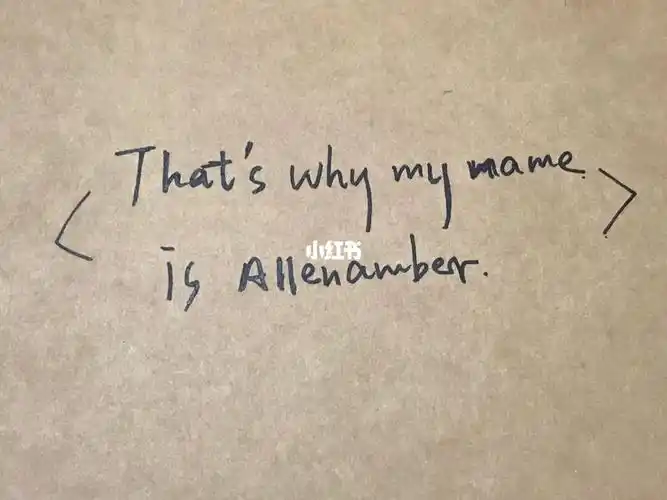 <That's why my mame>
小红书
is Allenamber.